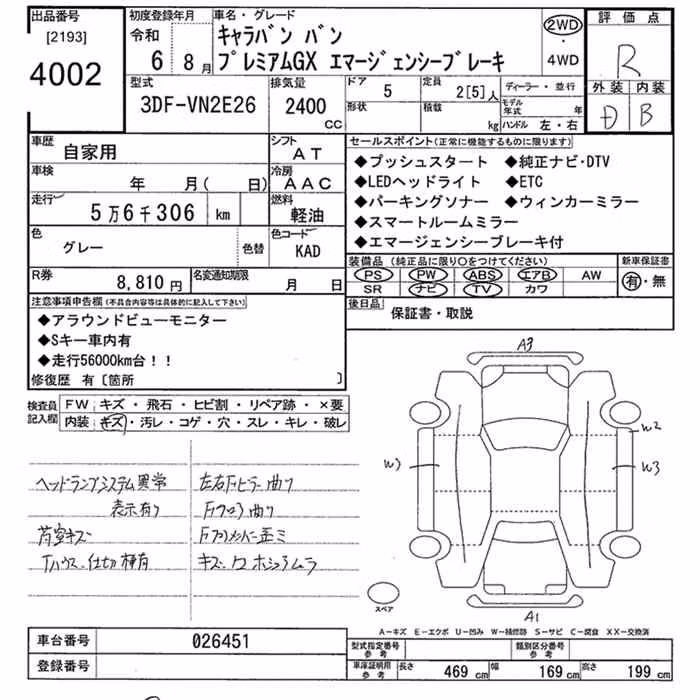 出品番号 初度登録年月 車名・グレード 評価点
[2193] 令和 キャラバン バン 2WD
4002 6 8月 プレミアムGX エマージェンシーブレーキ ・ 4WD R
外装 内装
D B
型式 排気量 ドア 5 定員 2[5]人 ディーラー・並行
3DF-VN2E26 2400 CC 形状 積載 kg モデル年式 年
ハンドル 左・右
車歴 自家用 シフト AT
車検 年 月( 日) 冷房 AAC
走行 5万6千306 km 燃料 軽油
色 グレー 色替 色コード KAD
R券 8,810円 名変通知期限 月 日
セールスポイント(正常に機能するものに限ります)
◆プッシュスタート ◆純正ナビ･DTV
◆LEDヘッドライト ◆ETC
◆パーキングソナー ◆ウィンカーミラー
◆スマートルームミラー
◆エマージェンシーブレーキ付
装備品 (純正品に限り○をつけてください) 新車保証書
PS PW ABS エアB AW 有・無
SR ナビ TV カワ
後日品 保証書・取説
注意事項申告欄(不具合内容等は具体的に記入して下さい)
◆アラウンドビューモニター
◆Sキー車内有
◆走行56000km台！！
修復歴 有〔箇所 〕
検査員記入欄 FW キズ・飛石・ヒビ割・リペア跡・×要
内装 キズ・汚レ・コゲ・穴・スレ・キレ・破レ
ヘッドランプシステム異常
表示有り
荷室キズ
左右Fピラー曲り
Fフロア曲り
A3
W2
W3 W3
A1
スペア
A－キズ E－エクボ U－凹み W－補修跡 S－サビ C－腐食 XX－交換済
車台番号 026451
登録番号
型式指定番号参考 類別区分番号参考
車庫証明用参考 長さ 469 cm 幅 169 cm 高さ 199 cm